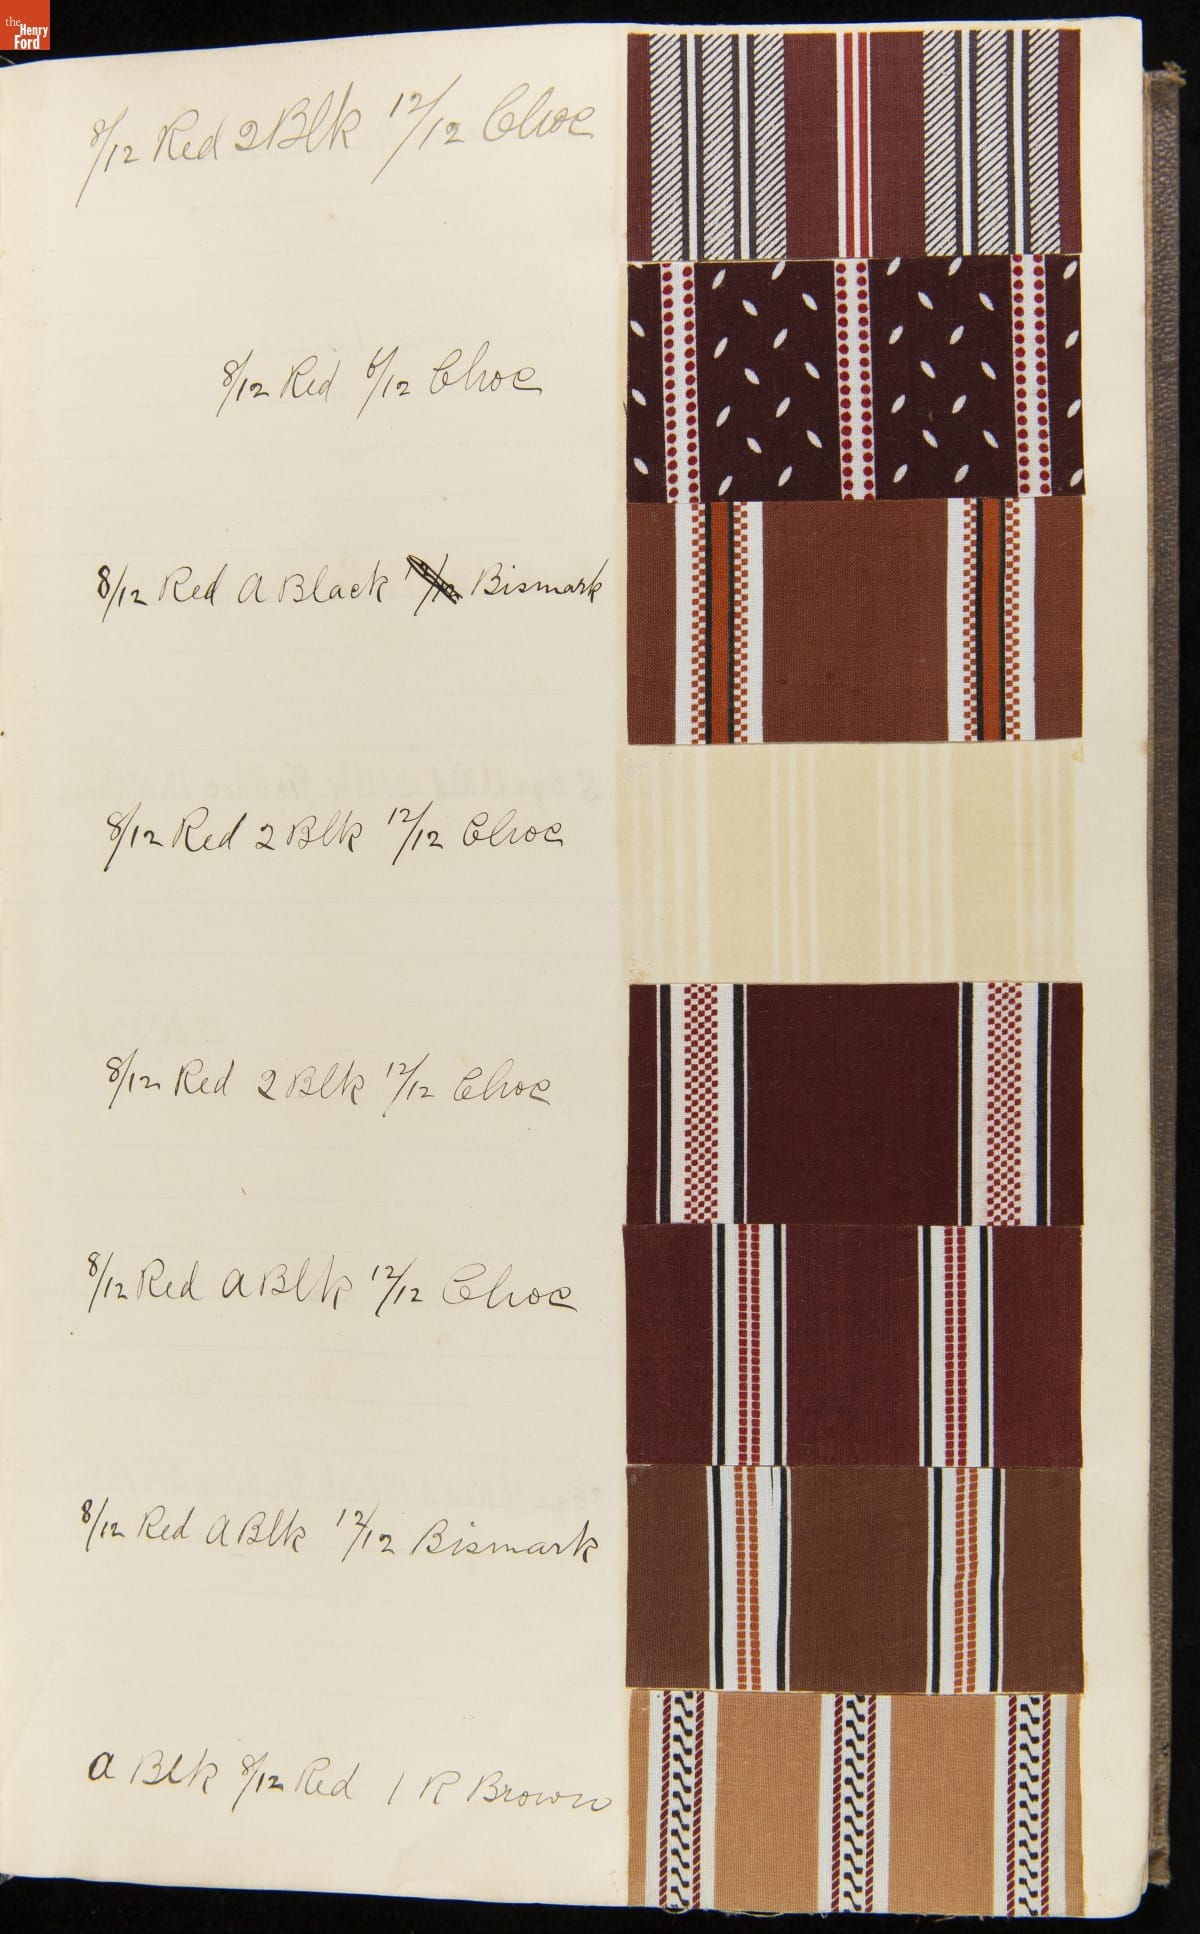 the
Henry
Ford
8/12 Red 2 Blk 12/12 Choc
8/12 Red 6/12 Choc
8/12 Red A Black 12/12 Bismark
8/12 Red 2 Blk 12/12 Choc
8/12 Red 2 Blk 12/12 Choc
8/12 Red A Blk 12/12 Choc
8/12 Red A Blk 12/12 Bismark
A Blk 8/12 Red 1 R Brown